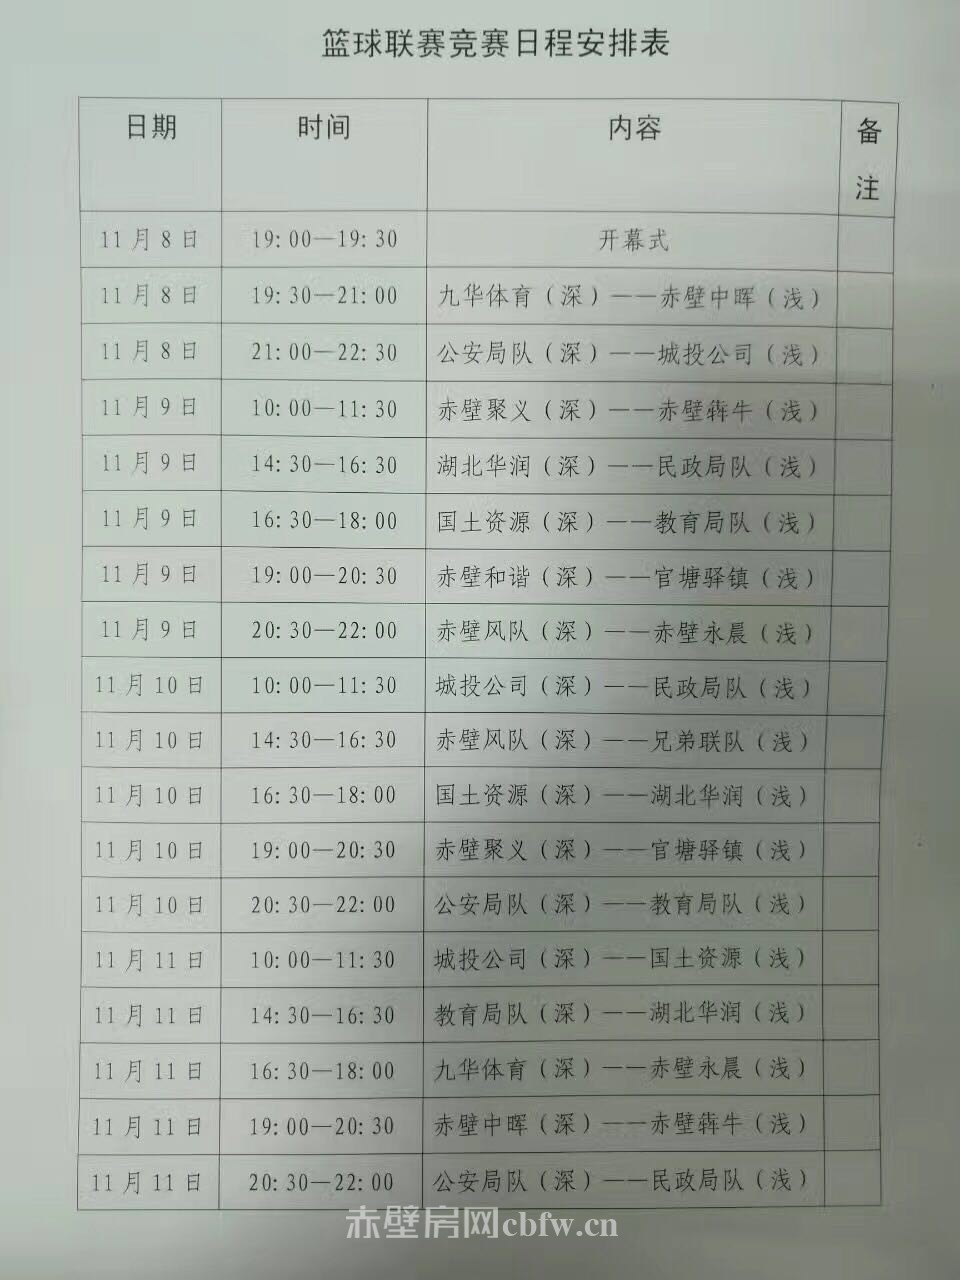 篮球联赛竞赛日程安排表
日期 时间 内容 备注
11月8日 19:00—19:30 开幕式
11月8日 19:30—21:00 九华体育(深)——赤壁中晖(浅)
11月8日 21:00—22:30 公安局队(深)——城投公司(浅)
11月9日 10:00—11:30 赤壁聚义(深)——赤壁犇牛(浅)
11月9日 14:30—16:30 湖北华润(深)——民政局队(浅)
11月9日 16:30—18:00 国土资源(深)——教育局队(浅)
11月9日 19:00—20:30 赤壁和谐(深)——官塘驿镇(浅)
11月9日 20:30—22:00 赤壁风队(深)——赤壁永晨(浅)
11月10日 10:00—11:30 城投公司(深)——民政局队(浅)
11月10日 14:30—16:30 赤壁风队(深)——兄弟联队(浅)
11月10日 16:30—18:00 国土资源(深)——湖北华润(浅)
11月10日 19:00—20:30 赤壁聚义(深)——官塘驿镇(浅)
11月10日 20:30—22:00 公安局队(深)——教育局队(浅)
11月11日 10:00—11:30 城投公司(深)——国土资源(浅)
11月11日 14:30—16:30 教育局队(深)——湖北华润(浅)
11月11日 16:30—18:00 九华体育(深)——赤壁永晨(浅)
11月11日 19:00—20:30 赤壁中晖(深)——赤壁犇牛(浅)
11月11日 20:30—22:00 公安局队(深)——民政局队(浅)
赤壁房网cbfw.cn